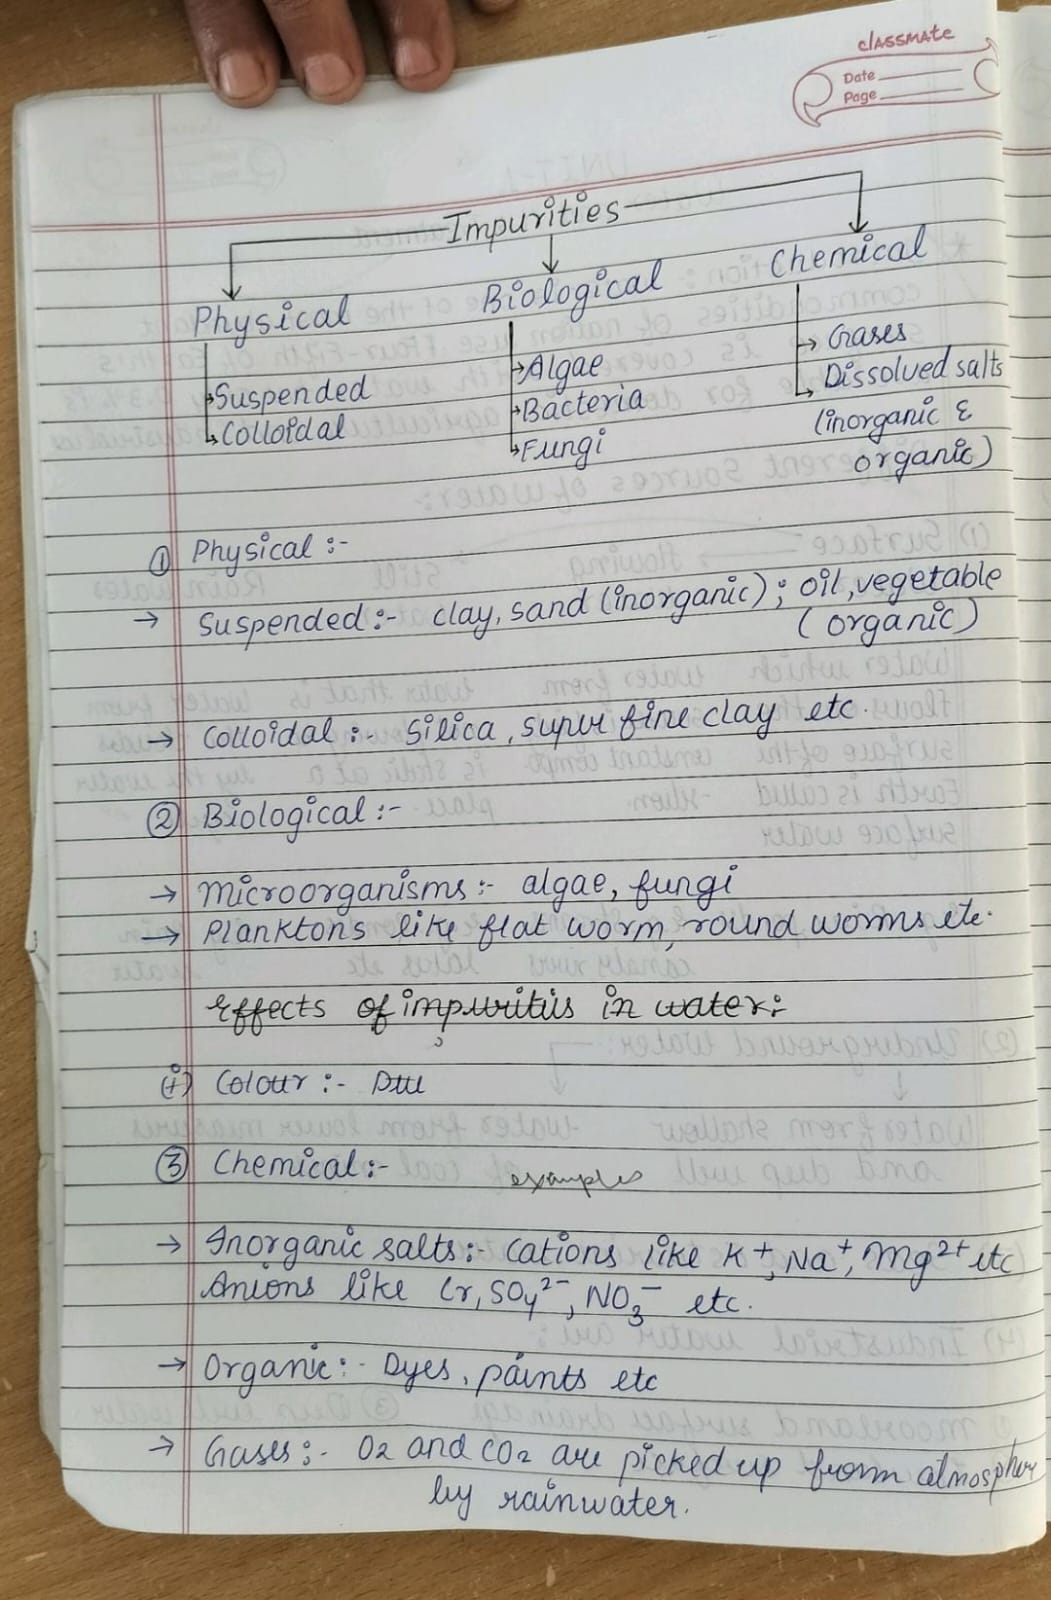 classmate
Date
Page
Impurities
Physical Biological Chemical
Suspended Algae Gases
Colloidal Bacteria Dissolved salts
Fungi (inorganic &
organic)
① Physical :-
→ Suspended :- clay, sand (inorganic) ; oil, vegetable
(organic)
→ Colloidal :- Silica, super fine clay etc.
② Biological :-
→ Microorganisms :- algae, fungi
→ Planktons like flat worm, round worms etc.
Effects of impurities in water :
(i) Colour :-
③ Chemical :- examples
→ Inorganic salts :- Cations like K+, Na+, Mg2+ etc
Anions like Cr, SO4 2-, NO3- etc.
→ Organic :- Dyes, paints etc
→ Gases :- O2 and CO2 are picked up from atmospher
by rainwater.